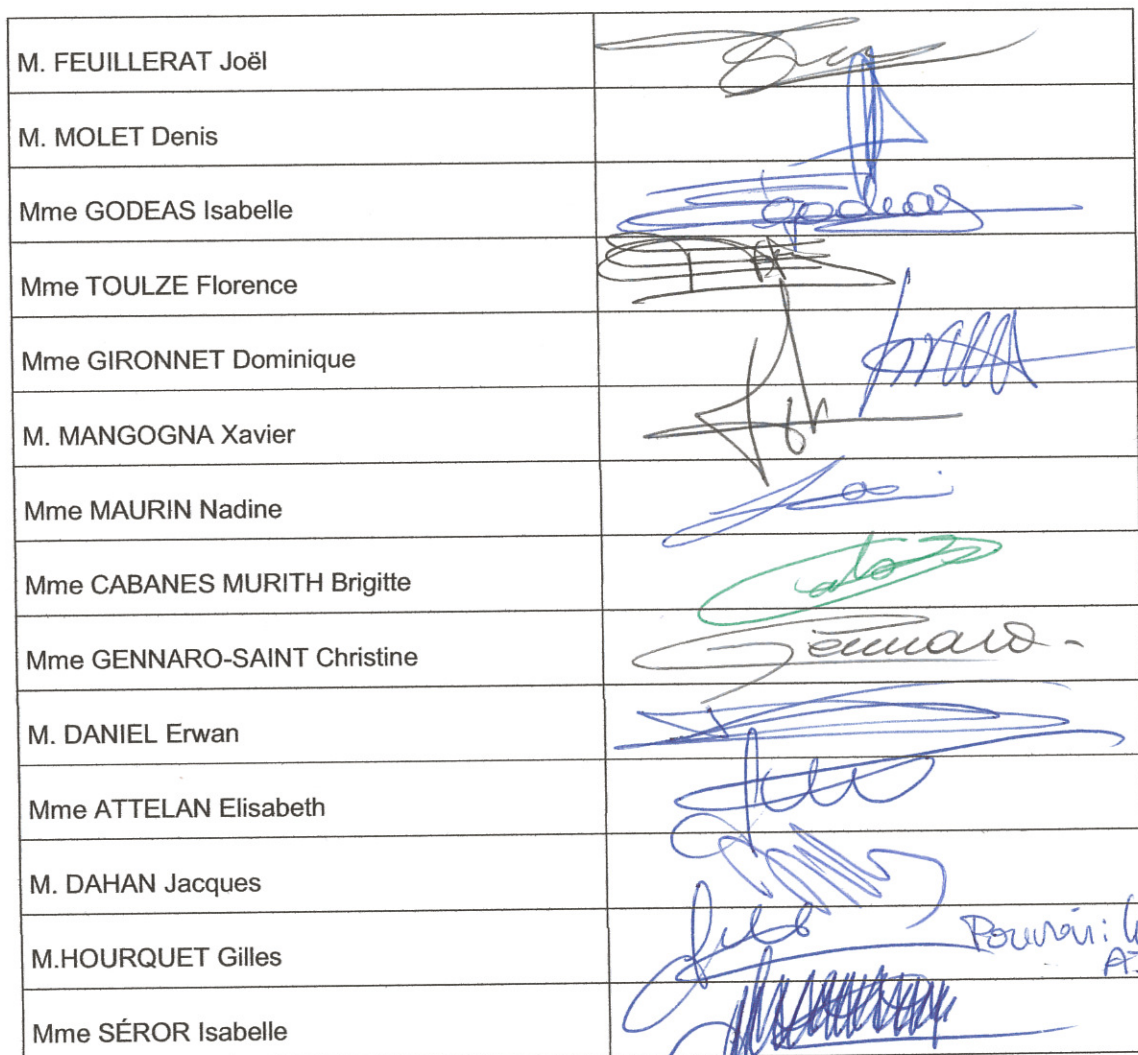 M. FEUILLERAT Joël
M. MOLET Denis
Mme GODEAS Isabelle
godeas
Mme TOULZE Florence
Mme GIRONNET Dominique
M. MANGOGNA Xavier
Mme MAURIN Nadine
Mme CABANES MURITH Brigitte
Mme GENNARO-SAINT Christine
Gennaro
M. DANIEL Erwan
Mme ATTELAN Elisabeth
M. DAHAN Jacques
M.HOURQUET Gilles
Pouvoir:
Mme SÉROR Isabelle